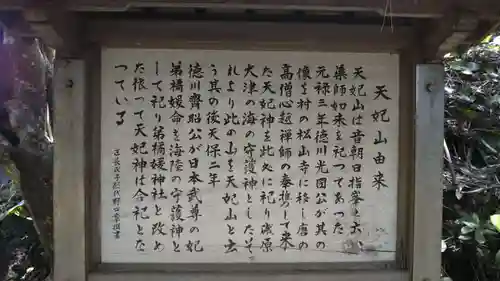 天妃山由来
天妃山は昔朝日指峯と云い
薬師如来を祀ってあった
元禄三年徳川光圀公が其の
像を村の松山寺に移し唐の
高僧心越禅師の奉持して来
た天妃神を此処に祀り磯原
大津の海の守護神としたそ
れより此の山を天妃山と云
う其の後天保二年
徳川齊昭公が日本武尊の妃
弟橘媛命を海陸の守護神と
して祀り弟橘媛神社と改め
た依って天妃神は合祀とな
っている